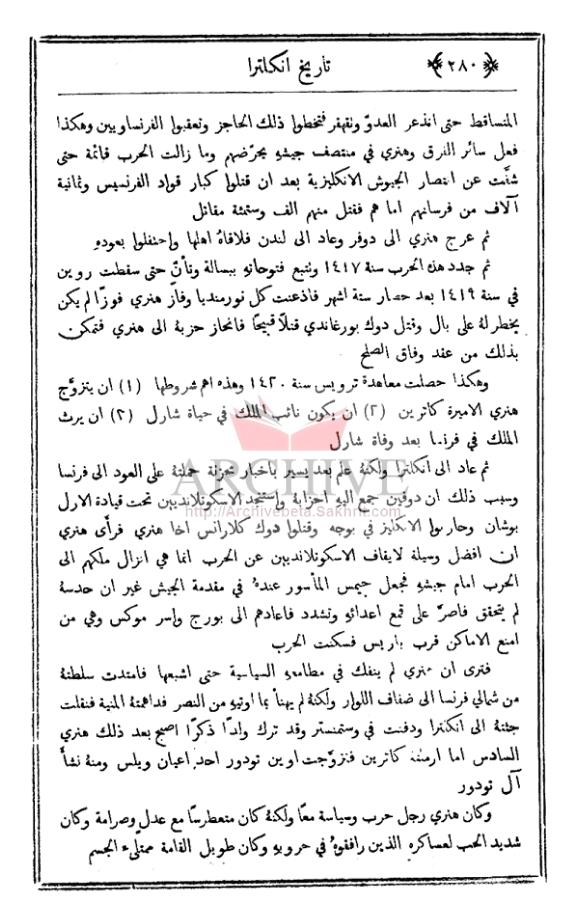 ﴿٢٨٠﴾ تاريخ انكلترا
المتساقط حتى انذعر العدوّ وتقهقر فتخطوا ذلك الحاجز وتعقبوا الفرنساويين وهكذا
فعل سائر الفرق وهنري في منتصف جيشهِ يحرّضهم وما زالت الحرب قائمة حتى
شفَّت عن انتصار الجيوش الانكليزية بعد ان قتلوا كبار قواد الفرنسيس وثمانية
آلاف من فرسانهم اما هم فقتل منهم الف وستمئة مقاتل
ثم عرج هنري الى دوفر وعاد الى لندن فلاقاهُ اهلها واحتفلوا بعودهِ
ثم جدد هذه الحرب سنة ١٤١٧ وتتبع فتوحاتهِ ببسالة وتأنٍّ حتى سقطت روين
في سنة ١٤١٩ بعد حصار ستة اشهر فاذعنت كل نورمنديا وفاز هنري فوزًا لم يكن
يخطر لهُ على بال وقتل دوك بورغاندي قتلاً قبيحًا فانحاز حزبهُ الى هنري فتمكن
بذلك من عقد وفاق الصلح
وهكذا حصلت معاهدة ترويس سنة ١٤٢٠ وهذه اهم شروطها (١) ان يتزوَّج
هنري الاميرة كاترين (٢) ان يكون نائب الملك في حياة شارل (٣) ان يرث
الملك في فرنسا بعد وفاة شارل
ثم عاد الى انكلترا ولكنهُ علم بعد يسير باخبار محزنة حملتهُ على العود الى فرنسا
وسبب ذلك ان دوفين جمع اليهِ احزابهُ واستنجد الاسكوتلانديين تحت قيادة الارل
بوشان وحاربوا الانكليز في بوجه وقتلوا دوك كلارانس اخا هنري فرأى هنري
ان افضل وسيلة لايقاف الاسكوتلانديين عن الحرب انما هي انزال ملكهم الى
الحرب امام جيشهِ فجعل جيمس المأسور عندهُ في مقدمة الجيش غير ان حدسهُ
لم يتحقق فاصرَّ على قمع اعدائهِ وتشدد فاعادهم الى بورج واسر موكس وهي من
امنع الاماكن قرب باريس فسكنت الحرب
فترى ان هنري لم ينفك في مطامعهِ السياسية حتى اشبعها فامتدت سلطتهُ
من شمالي فرنسا الى ضفاف اللوار ولكنهُ لم يهنأ بما اوتيهِ من النصر فداهمتهُ المنية فنقلت
جثتهُ الى انكلترا ودفنت في وستمنستر وقد ترك ولدًا ذكرًا اصبح بعد ذلك هنري
السادس اما ارملتهُ كاترين فتزوَّجت اوين تودور احد اعيان ويلس ومنهُ نشأ
آل تودور
وكان هنري رجل حرب وسياسة معًا ولكنهُ كان متعطرسًا مع عدل وصرامة وكان
شديد الحب لعساكره الذين رافقوهُ في حروبهِ وكان طويل القامة ممتلىء الجسم
ARCHIVE
http://Archivebeta.Sakhrit.com